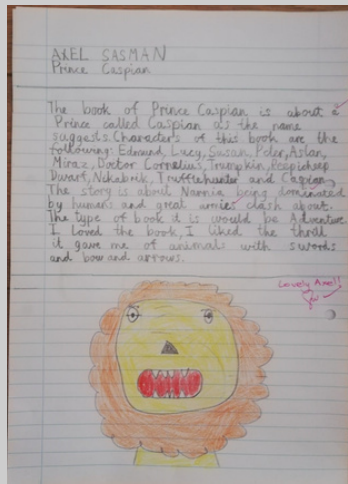 AXEL SASMAN
Prince Caspian
The book of Prince Caspian is about a
Prince called Caspian as the name
suggests. Characters of this book are the
following: Edmund, Lucy, Susan, Peter, Aslan,
Miraz, Doctor Cornelius, Trumpkin, Reepicheep
Dwarf, Nikabrik, Trufflehunter and Caspian.
The story is about Narnia being dominated
by humans and great armies clash about.
The type of book it is would be Adventure.
I Loved the book, I liked the thrill
it gave me of animals with swords
and bow and arrows.
Lovely Axel!